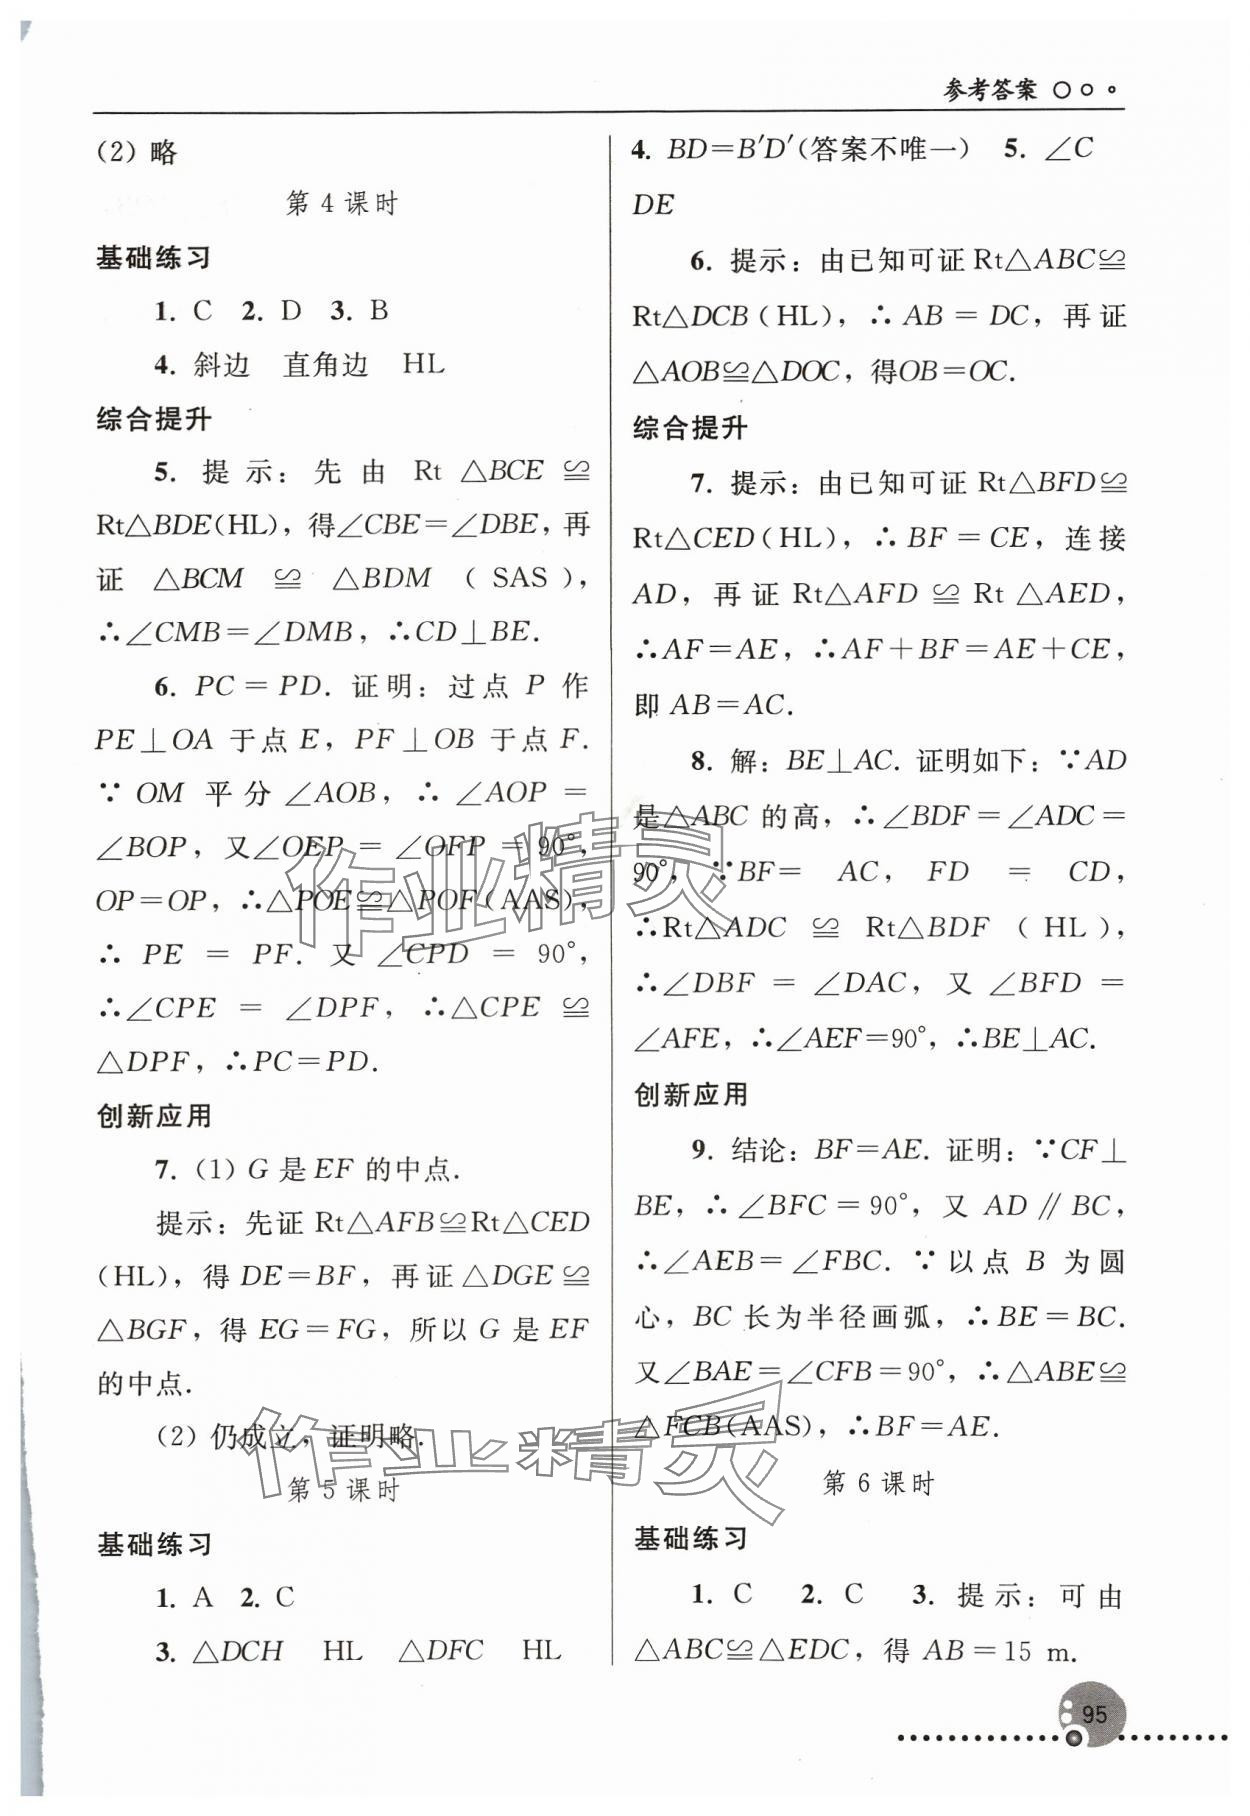 参考答案
(2) 略
第 4 课时
基础练习
1. C 2. D 3. B
4. 斜边 直角边 HL
综合提升
5. 提示：先由 Rt △BCE ≌
Rt△BDE(HL)，得∠CBE=∠DBE，再
证 △BCM ≌ △BDM (SAS)，
∴∠CMB=∠DMB，∴CD⊥BE.
6. PC=PD. 证明：过点 P 作
PE⊥OA 于点 E，PF⊥OB 于点 F.
∵ OM 平分∠AOB，∴ ∠AOP =
∠BOP，又∠OEP = ∠OFP = 90°，
OP=OP，∴△POE≌△POF(AAS)，
∴ PE = PF. 又 ∠CPD = 90°，
∴∠CPE = ∠DPF，∴△CPE ≌
△DPF，∴PC=PD.
创新应用
7. (1) G 是 EF 的中点.
提示：先证 Rt△AFB≌Rt△CED
(HL)，得 DE=BF，再证△DGE≌
△BGF，得 EG=FG，所以 G 是 EF
的中点.
(2) 仍成立，证明略.
第 5 课时
基础练习
1. A 2. C
3. △DCH HL △DFC HL
4. BD=B′D′(答案不唯一) 5. ∠C
DE
6. 提示：由已知可证 Rt△ABC≌
Rt△DCB(HL)，∴ AB = DC，再证
△AOB≌△DOC，得OB=OC.
综合提升
7. 提示：由已知可证 Rt△BFD≌
Rt△CED(HL)，∴ BF = CE，连接
AD，再证 Rt△AFD ≌ Rt △AED，
∴AF=AE，∴AF+BF=AE+CE，
即 AB=AC.
8. 解：BE⊥AC. 证明如下：∵AD
是△ABC 的高，∴∠BDF=∠ADC=
90°，∵BF= AC，FD = CD，
∴Rt△ADC ≌ Rt△BDF (HL)，
∴∠DBF = ∠DAC，又 ∠BFD =
∠AFE，∴∠AEF=90°，∴BE⊥AC.
创新应用
9. 结论：BF=AE. 证明：∵CF⊥
BE，∴ ∠BFC = 90°，又 AD∥BC，
∴∠AEB=∠FBC. ∵ 以点 B 为圆
心，BC 长为半径画弧，∴BE=BC.
又∠BAE=∠CFB=90°，∴△ABE≌
△FCB(AAS)，∴BF=AE.
第 6 课时
基础练习
1. C 2. C 3. 提示：可由
△ABC≌△EDC，得 AB=15 m.
作业精灵
作业精灵
95